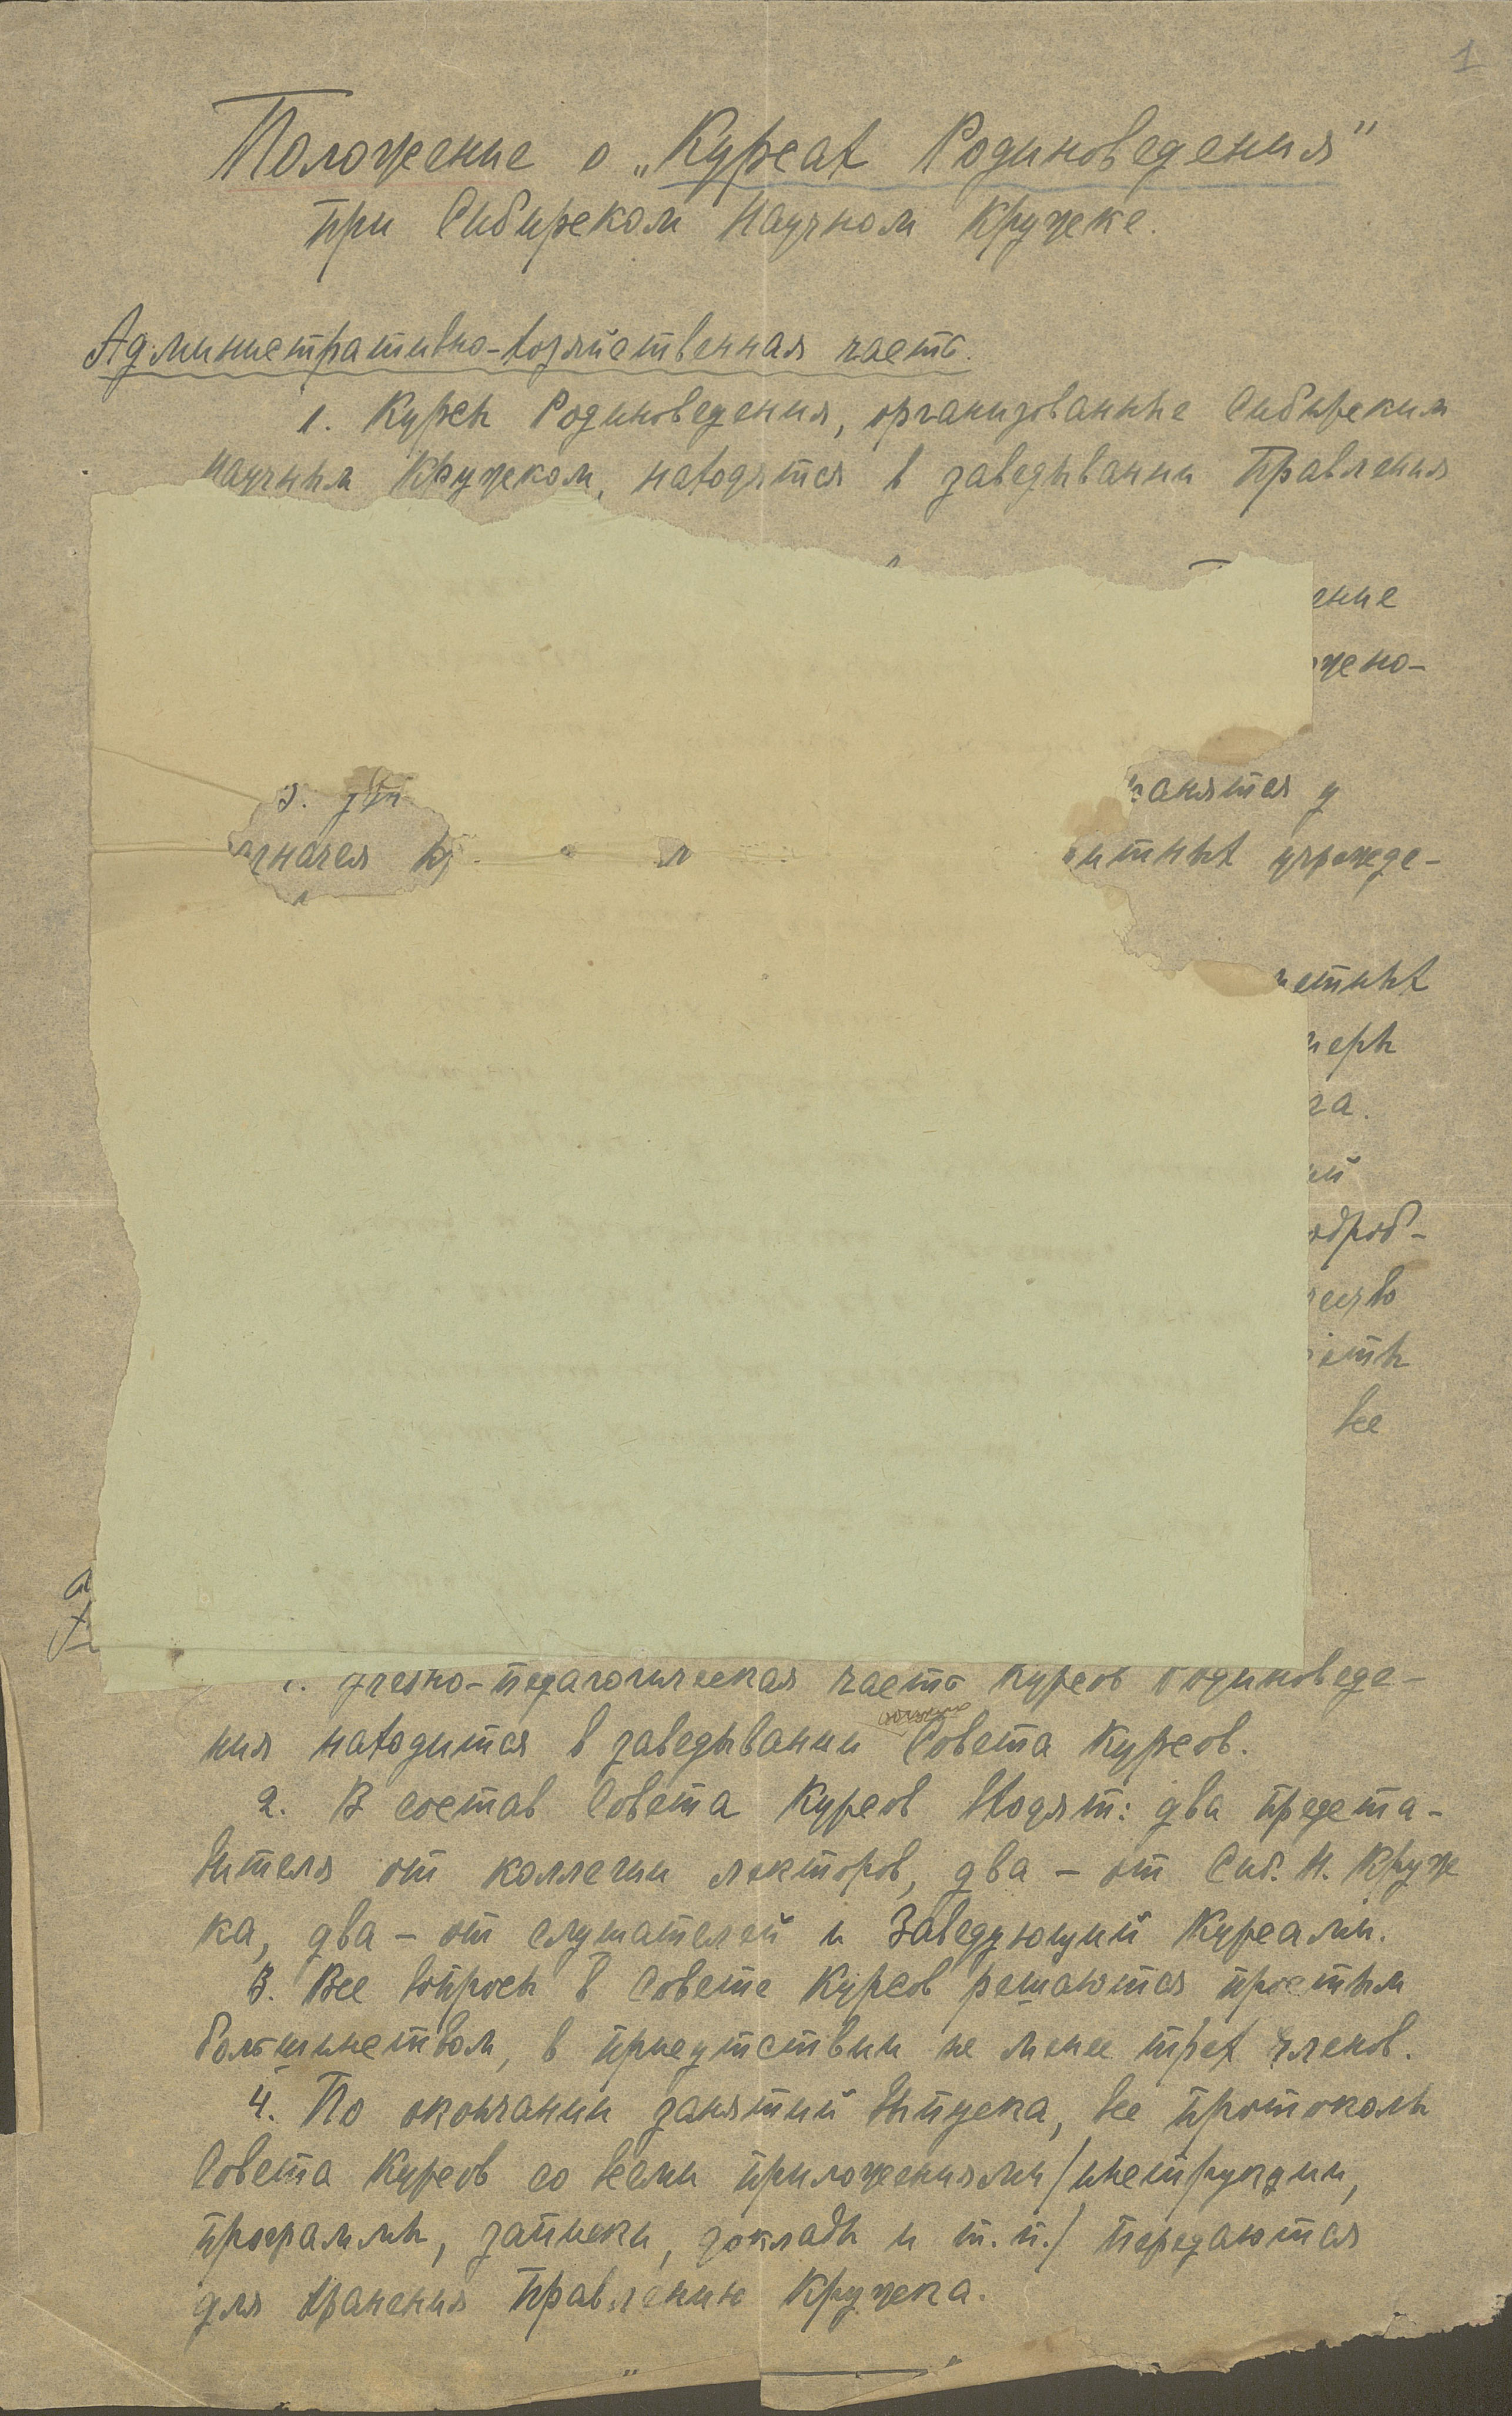 1
Положение о „Курсах Родиноведения"
при Сибирском Научном Кружке.
Административно-хозяйственная часть.
1. Курсы Родиноведения, организованные Сибирским
Научным Кружком, находятся в заведывании Правления
ение
жено-
3.
анятся у
ч учрежде-
меры
га.
ий
одроб-
все
1. Учебно-педагогическая часть Курсов Родиноведе-
ния находится в заведывании Совета Курсов.
2. В состав Совета Курсов входят: два предста-
вителя от коллегии лекторов, два – от Сиб. Н. Круж
ка, два – от слушателей и Заведующий Курсами.
3. Все вопросы в Совете Курсов решаются простым
большинством, в присутствии не менее трех членов.
4. По окончании занятий выпуска, все протоколы
Совета Курсов со всеми приложениями /инструкции,
программы, записки, доклады и т.п./ передаются
для хранения Правлению Кружка.